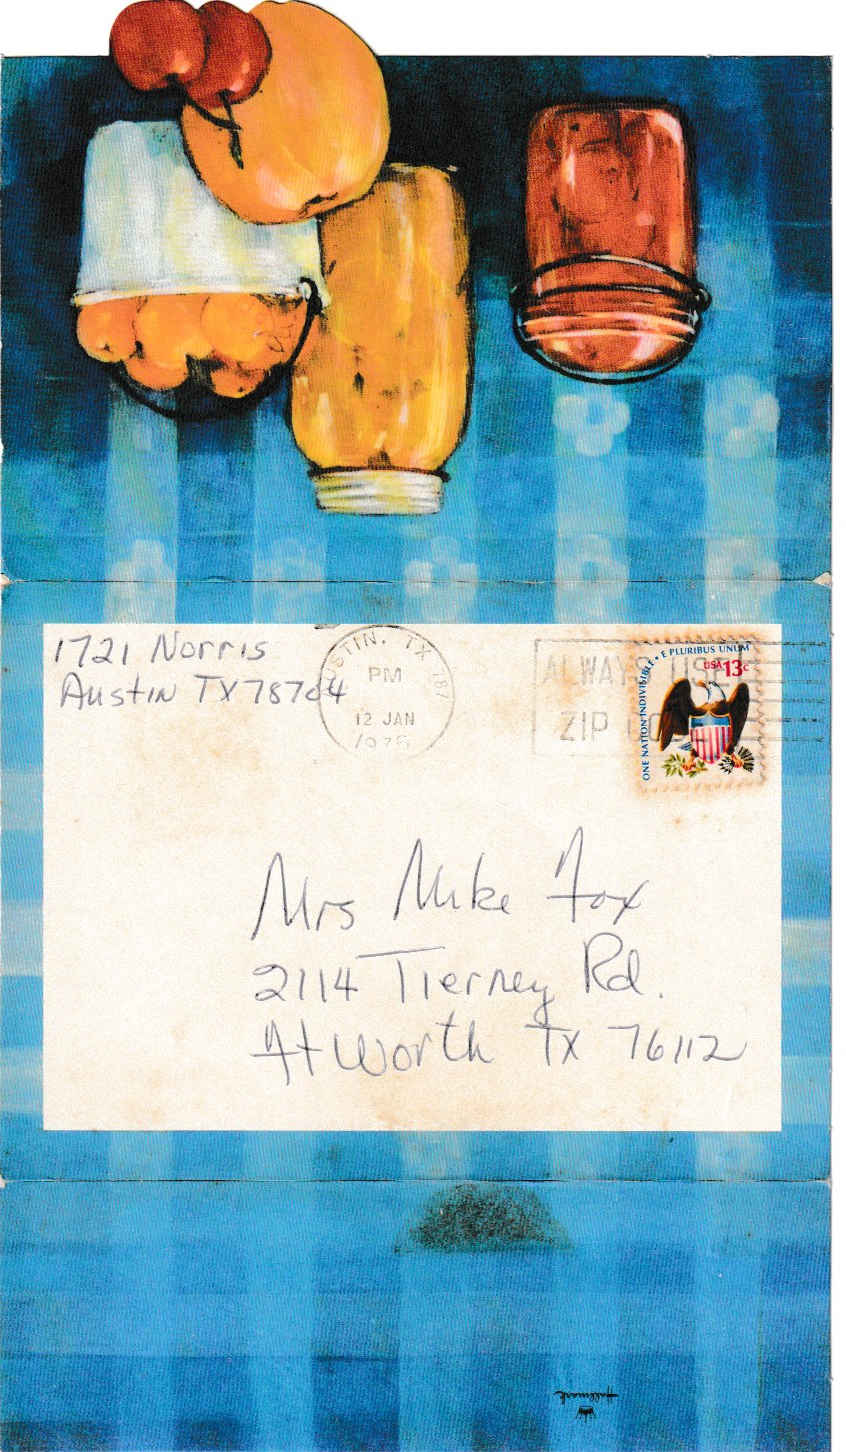 1721 Norris
Austin TX 78704
AUSTIN, TX 787
PM
12 JAN
ALWAYS USE
ZIP CODE
ONE NATION INDIVISIBLE • E PLURIBUS UNUM
USA 13c
Mrs Mike Fox
2114 Tierney Rd.
Ft Worth TX 76112
Hallmark